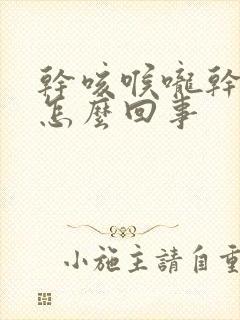 幹咳喉嚨幹
怎麼回事
小施主請自重